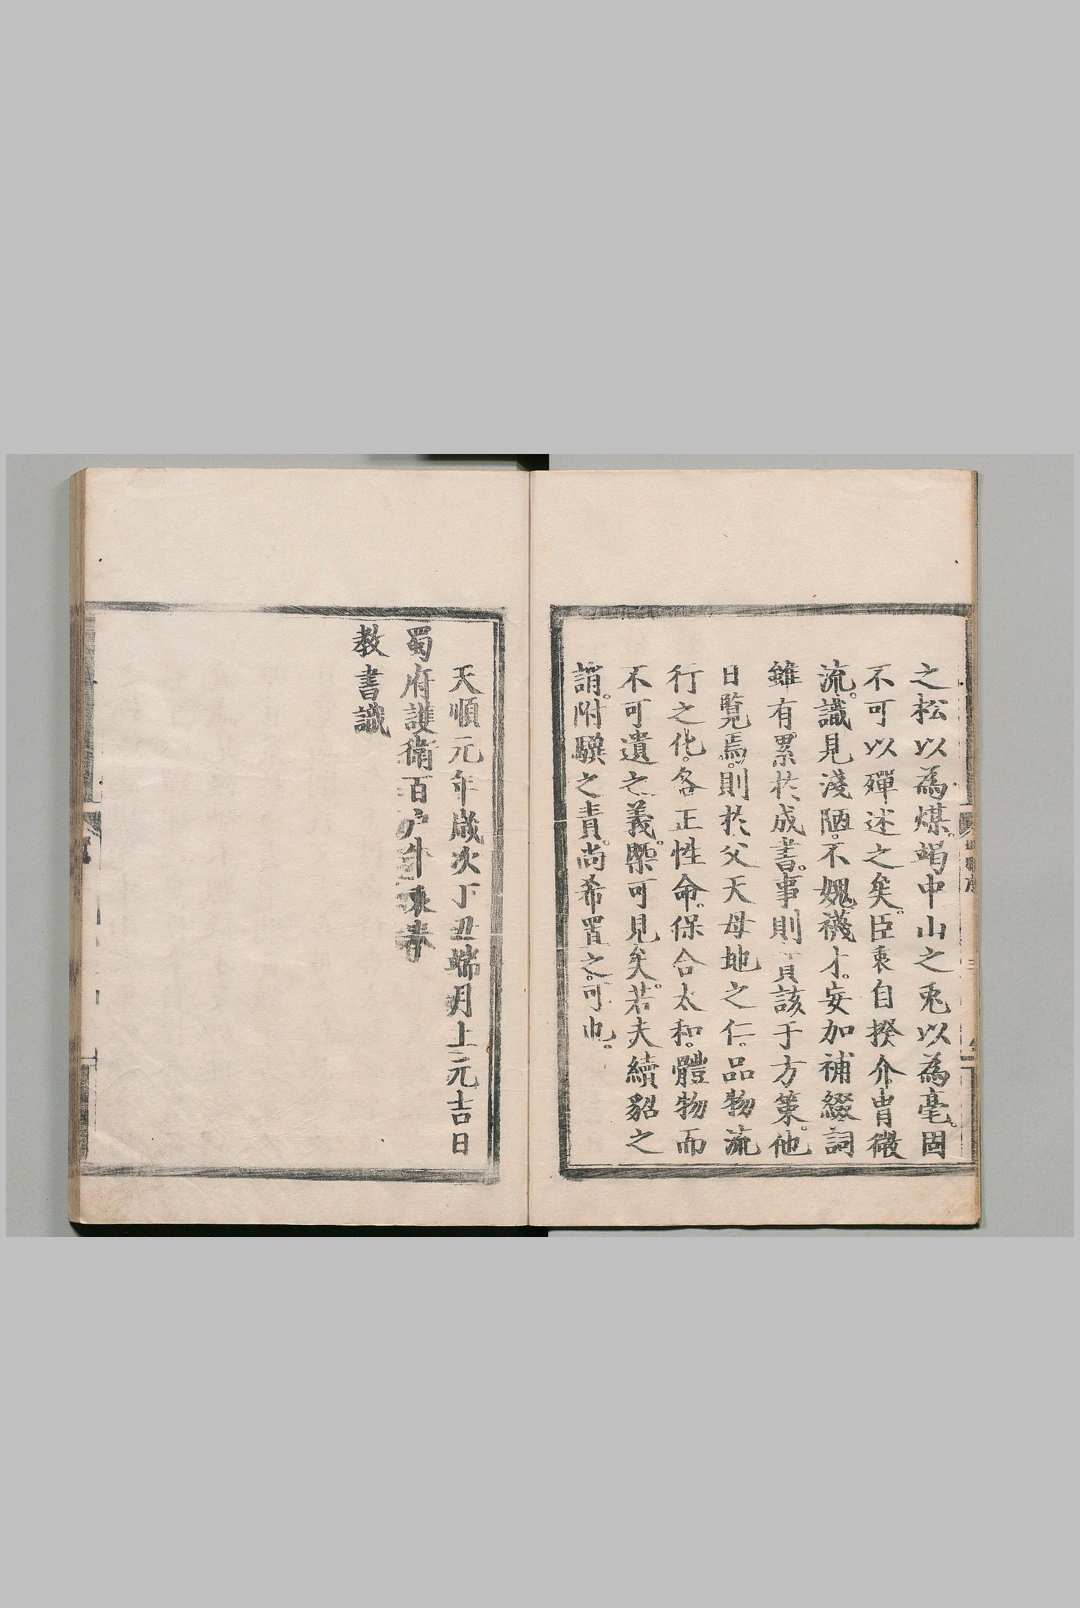 之松以為煤。竭中山之兎以為毫。固
不可以殫述之矣。臣衷自揆介胄微
流。識見淺陋。不媿襪才。妄加補綴詞
雖有累於成書。事則該于方策。他
日覽焉。則於父天母地之仁。品物流
行之化。各正性命。保合太和。體物而
不可遺之義。槩可見矣。若夫續貂之
誚。附驥之責。尚希置之。可也。
天順元年歲次丁丑端月上元吉日
蜀府護衛百戶
教書識